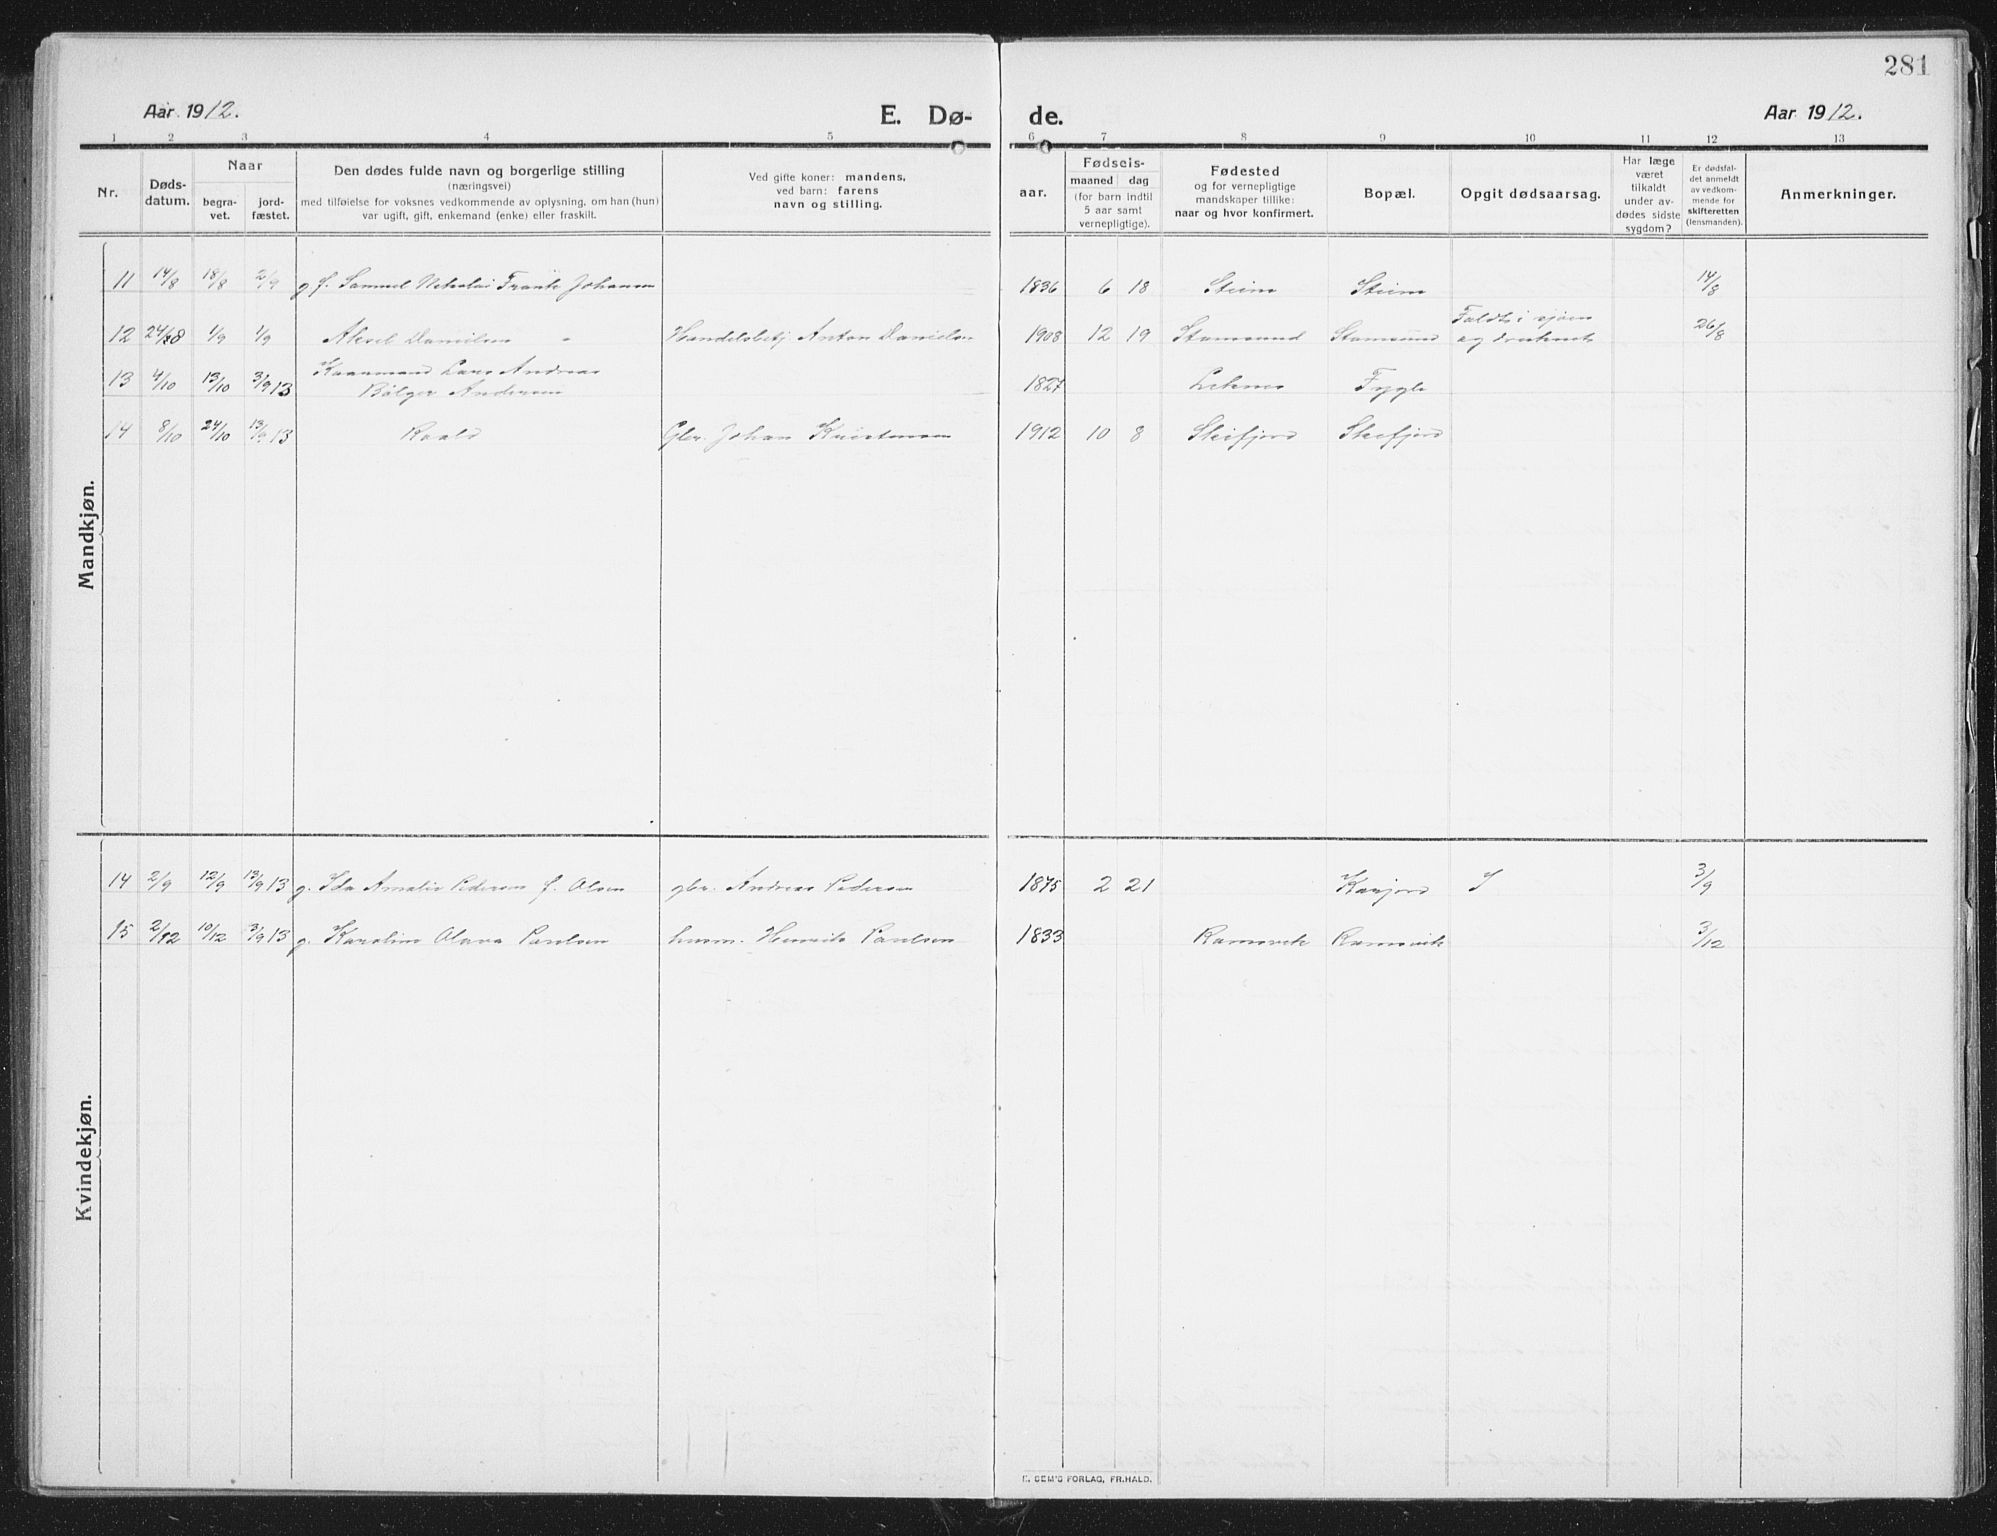 281
Aar 1912.
E. Dø-
de.
Aar 1912.
1 2 3 4 5 6 7 8 9 10 11 12 13
Nr.
Døds-
datum.
Naar
begra-
vet.
jord-
fæstet.
Den dødes fulde navn og borgerlige stilling
(næringsvei)
med tilføielse for voksnes vedkommende av oplysning, om han (hun)
var ugift, gift, enkemand (enke) eller fraskilt.
Ved gifte koner: mandens,
ved barn: farens
navn og stilling.
Fødsels-
aar.
maaned dag
(for barn indtil
5 aar samt
vernepligtige).
Fødested
og for vernepligtige
mandskaper tillike:
naar og hvor konfirmert.
Bopæl.
Opgit dødsaarsag.
Har læge
været
tilkaldt
under av-
dødes sidste
sygdom?
Er dødsfal-
det anmeldt
av vedkom-
mende for
skifteretten
(lensmanden).
Anmerkninger.
Mandkjøn.
11 14/8 18/8 2/9 g f. Samuel Nikolai Johansen 1836 6 18 Steine Steine 14/8
12 24/8 1/9 1/9 Aksel Danielsen Handelsbetj Anton Danielsen 1908 12 19 Stamsund Stamsund Faldt i sjøen og druknet 26/8
13 4/10 13/10 3/9 13 Kaarmand Lars Andreas
Bolger Andersen 1827 Leknes Fygle
14 8/10 24/10 13/9 13 Roald Gbr. Johan Kristensen 1912 10 8 Skifjord Skifjord
Kvindekjøn.
14 2/9 12/9 13/9 13 g. Ida Amalie Pedersen f. Olsen gbr. Andreas Pedersen 1875 2 21 3/9
15 2/12 10/12 3/9 13 g. Karoline Olava Paulsen husm. Henrik Paulsen 1833 Ramsvik Ramsvik 3/12
E. SEM'S FORLAG, FR.HALD.